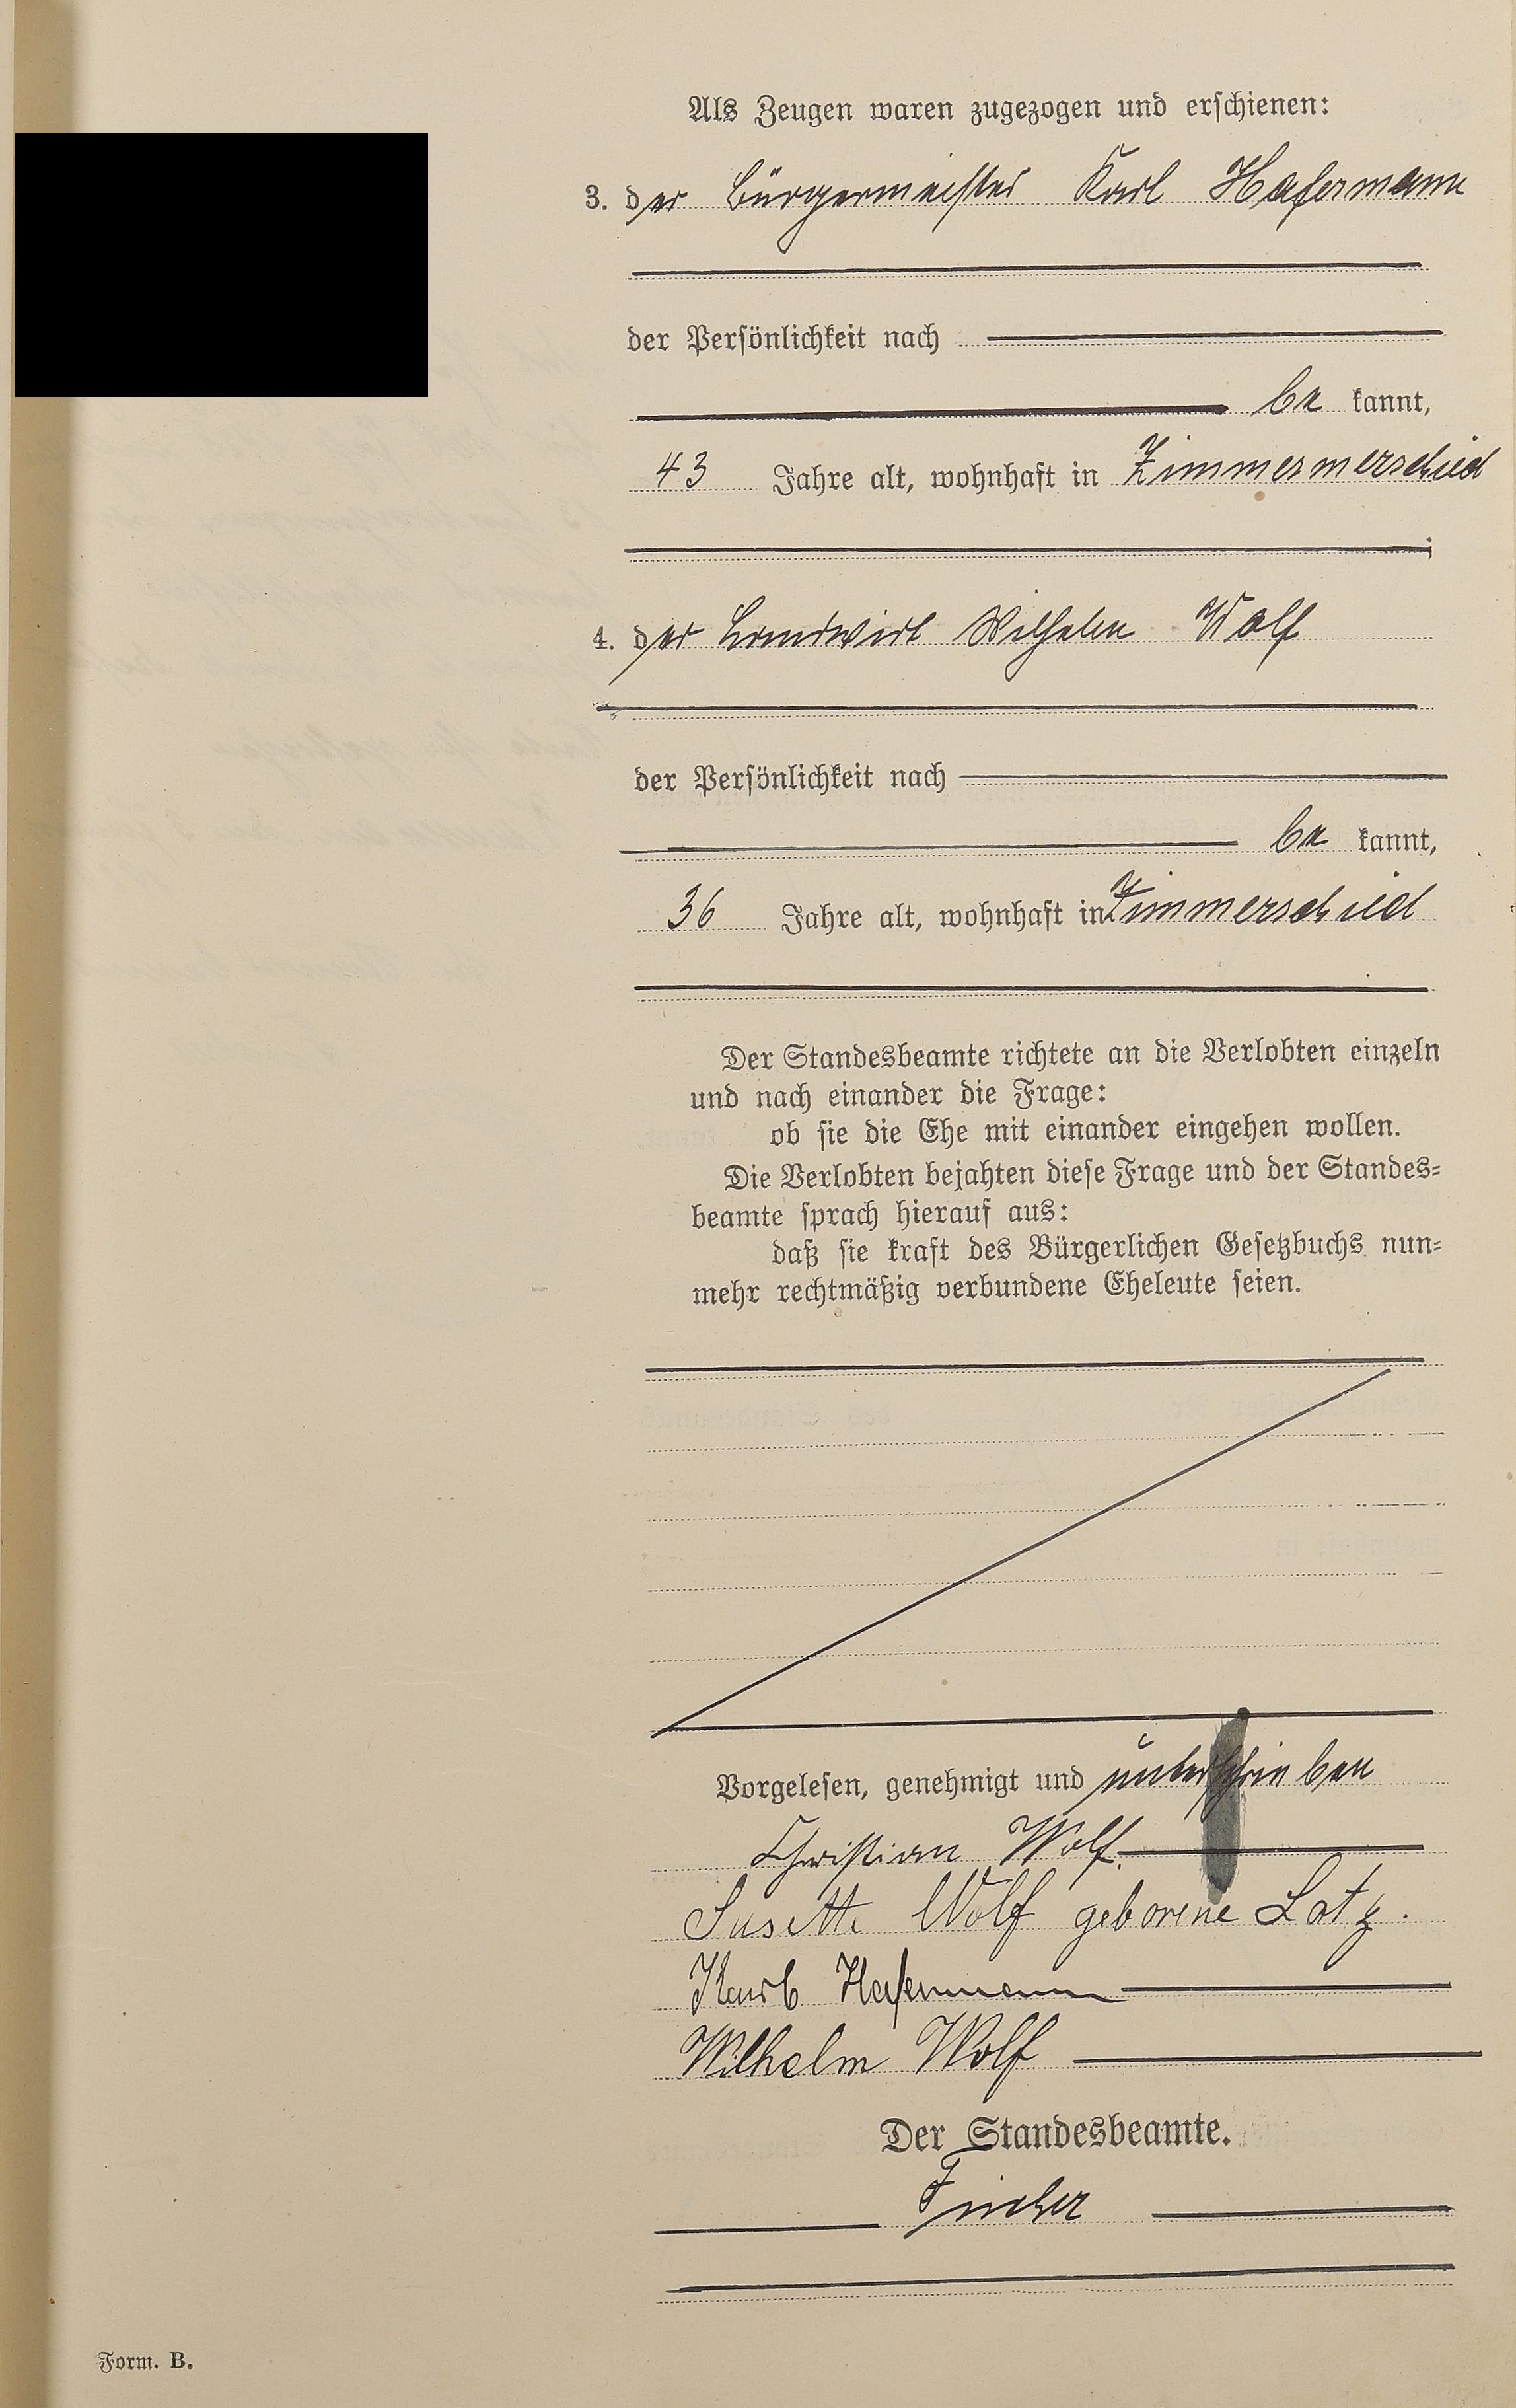 Als Zeugen waren zugezogen und erschienen:
3. der Bürgermeister Karl Hafermann
der Persönlichkeit nach
be kannt,
43 Jahre alt, wohnhaft in Zimmermerschied
4. der Landwirt Wilhelm Wolf
der Persönlichkeit nach
be kannt,
36 Jahre alt, wohnhaft in Zimmerschied
Der Standesbeamte richtete an die Verlobten einzeln
und nach einander die Frage:
ob sie die Ehe mit einander eingehen wollen.
Die Verlobten bejahten diese Frage und der Standes=
beamte sprach hierauf aus:
daß sie kraft des Bürgerlichen Gesetzbuchs nun=
mehr rechtmäßig verbundene Eheleute seien.
Vorgelesen, genehmigt und unterschrieben
Christian Wolf.
Susette Wolf geborene Lotz.
Karl Hafermann
Wilhelm Wolf
Der Standesbeamte.
Form. B.